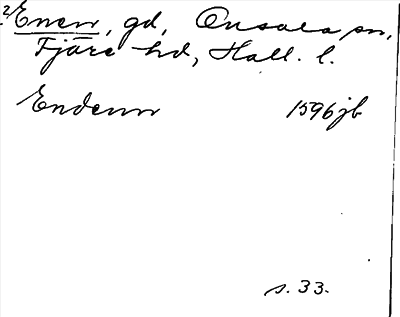 2 Enen, gd, Onsala sn,
Fjäre hd, Hall. l.
Endenn 1596 jb
s. 33.